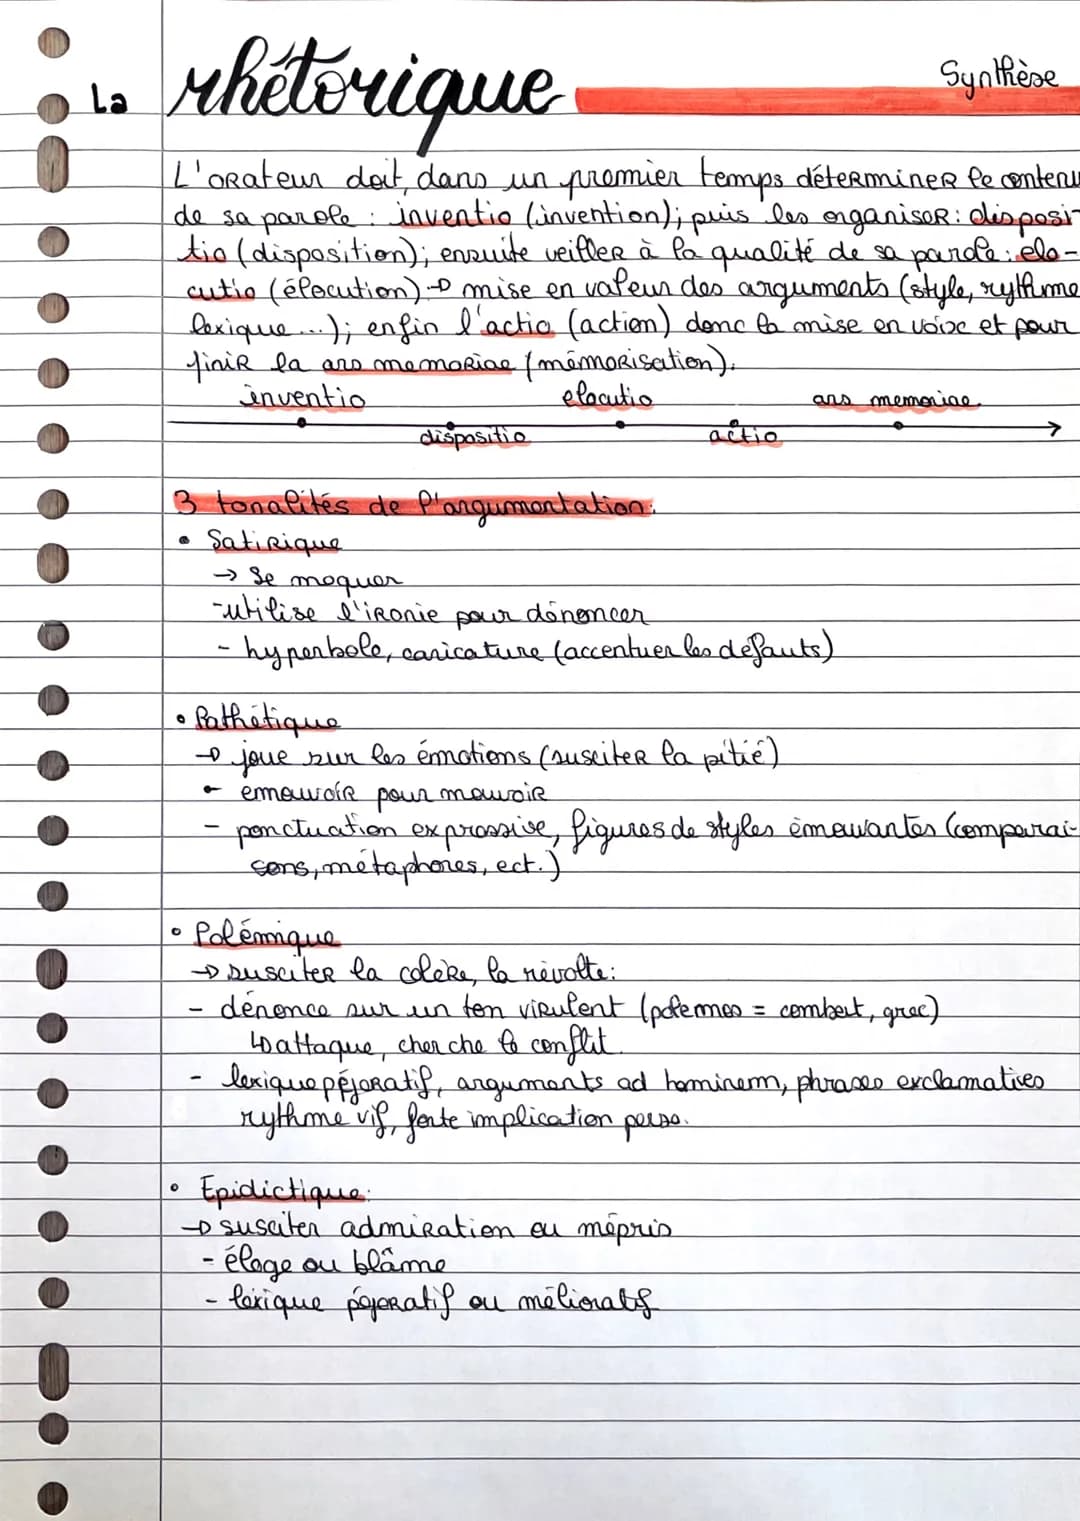 La rhétorique
Synthèse
L'orateur doit, dans un premier temps déterminer le contenu
de sa parole : inventio (invention); puis les organiser : disposi-
tio (disposition); ensuite veiller à la qualité de sa parole : elo-
cutio (élocution) → mise en valeur des arguments (style, rythme
lexique ...); enfin l'actio (action) donc la mise en voix et pour
finir la ars memoriae (mémorisation).
inventio elocutio ars memoriae
dispositio actio
3 tonalités de l'argumentation :
• Satirique
→ Se moquer
- utilise l'ironie pour dénoncer
- hyperbole, caricature (accentuer les défauts)
• Pathétique
→ joue sur les émotions (susciter la pitié)
- emouvoir pour mouvoir
- ponctuation expressive, figures de styles émouvantes (comparai-
sons, métaphores, ect.)
• Polémique
→ susciter la colère, la révolte :
- dénonce sur un ton virulent (polemos = combat, grec)
↳ attaque, cherche le conflit
- lexique péjoratif, arguments ad hominem, phrases exclamatives
rythme vif, forte implication perso.
• Epidictique :
→ susciter admiration ou mépris
- éloge ou blâme
- lexique péjoratif ou mélioratif